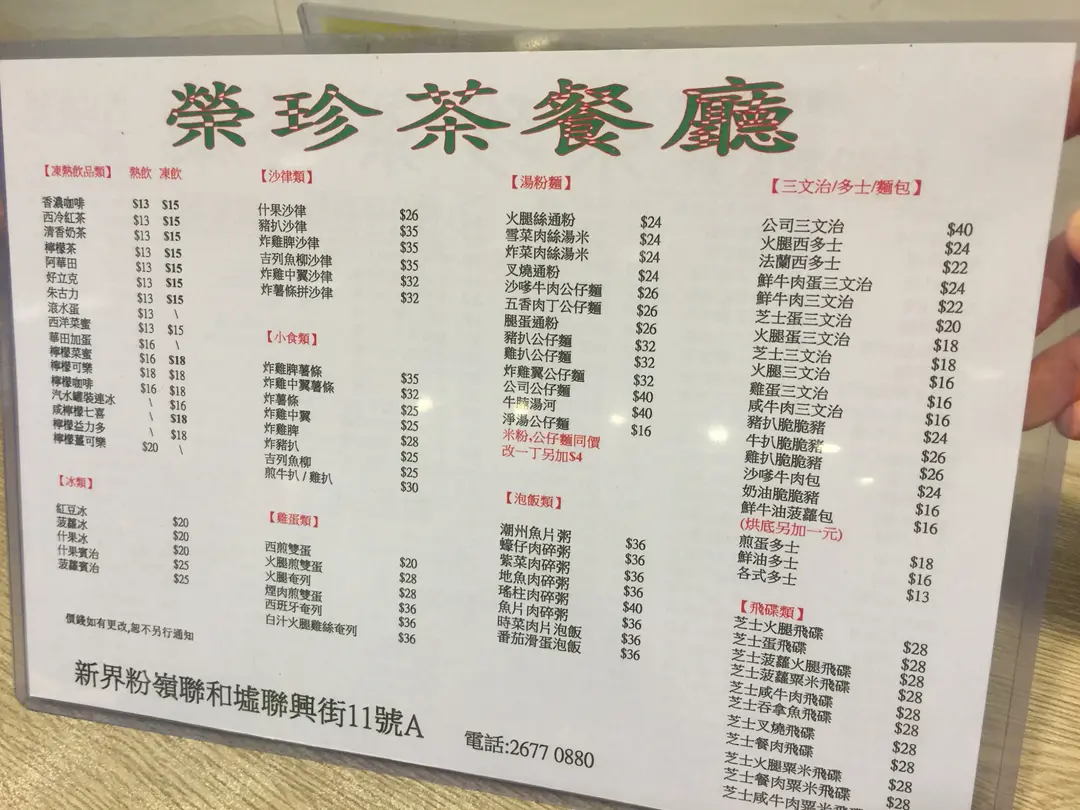 榮珍茶餐廳
【凍熱飲品類】 熱飲 凍飲
香濃咖啡 $13 $15
西冷紅茶 $13 $15
清香奶茶 $13 $15
檸檬茶 $13 $15
阿華田 $13 $15
好立克 $13 $15
朱古力 $13 $15
滾水蛋 $13 \
西洋菜蜜 $13 $15
華田加蛋 $16 \
檸檬菜蜜 $16 $18
檸檬可樂 $18 $18
檸檬咖啡 $16 $18
汽水罐裝連冰 \ $16
咸檸檬七喜 \ $18
檸檬益力多 \ $18
檸檬薑可樂 $20 \
【冰類】
紅豆冰 $20
菠蘿冰 $20
什果冰 $20
什果賓治 $25
菠蘿賓治 $25
價錢如有更改,恕不另行通知
【沙律類】
什果沙律 $26
豬扒沙律 $35
炸雞脾沙律 $35
吉列魚柳沙律 $35
炸雞中翼沙律 $32
炸薯條拼沙律 $32
【小食類】
炸雞脾薯條 $35
炸雞中翼薯條 $32
炸薯條 $25
炸雞中翼 $25
炸雞脾 $25
炸豬扒 $28
吉列魚柳 $25
煎牛扒 / 雞扒 $30
【雞蛋類】
西煎雙蛋 $20
火腿煎雙蛋 $28
火腿奄列 $28
煙肉煎雙蛋 $36
西班牙奄列 $36
白汁火腿雞絲奄列 $36
【湯粉麵】
火腿絲通粉 $24
雪菜肉絲湯米 $24
炸菜肉絲湯米 $24
叉燒通粉 $24
沙嗲牛肉公仔麵 $26
五香肉丁公仔麵 $26
腿蛋通粉 $26
豬扒公仔麵 $32
雞扒公仔麵 $32
炸雞翼公仔麵 $32
公司公仔麵 $40
牛腩湯河 $40
淨湯公仔麵 $16
米粉,公仔麵同價
改一丁另加$4
【泡飯類】
潮州魚片粥 $36
蠔仔肉碎粥 $36
紫菜肉碎粥 $36
地魚肉碎粥 $36
瑤柱肉碎粥 $40
魚片肉碎粥 $36
時菜肉片泡飯 $36
番茄滑蛋泡飯 $36
【三文治/多士/麵包】
公司三文治 $40
火腿西多士 $24
法蘭西多士 $22
鮮牛肉蛋三文治 $24
鮮牛肉三文治 $22
芝士蛋三文治 $20
火腿蛋三文治 $18
芝士三文治 $18
火腿三文治 $16
雞蛋三文治 $16
咸牛肉三文治 $16
豬扒脆脆豬 $24
牛扒脆脆豬 $26
雞扒脆脆豬 $26
沙嗲牛肉包 $24
奶油脆脆豬 $16
鮮牛油菠蘿包 $16
(烘底另加一元)
煎蛋多士 $18
鮮油多士 $16
各式多士 $13
【飛碟類】
芝士火腿飛碟 $28
芝士蛋飛碟 $28
芝士菠蘿火腿飛碟 $28
芝士菠蘿粟米飛碟 $28
芝士咸牛肉飛碟 $28
芝士吞拿魚飛碟 $28
芝士叉燒飛碟 $28
芝士餐肉飛碟 $28
芝士火腿粟米飛碟 $28
芝士餐肉粟米飛碟 $28
芝士咸牛肉粟米飛碟
新界粉嶺聯和墟聯興街11號A
電話:2677 0880